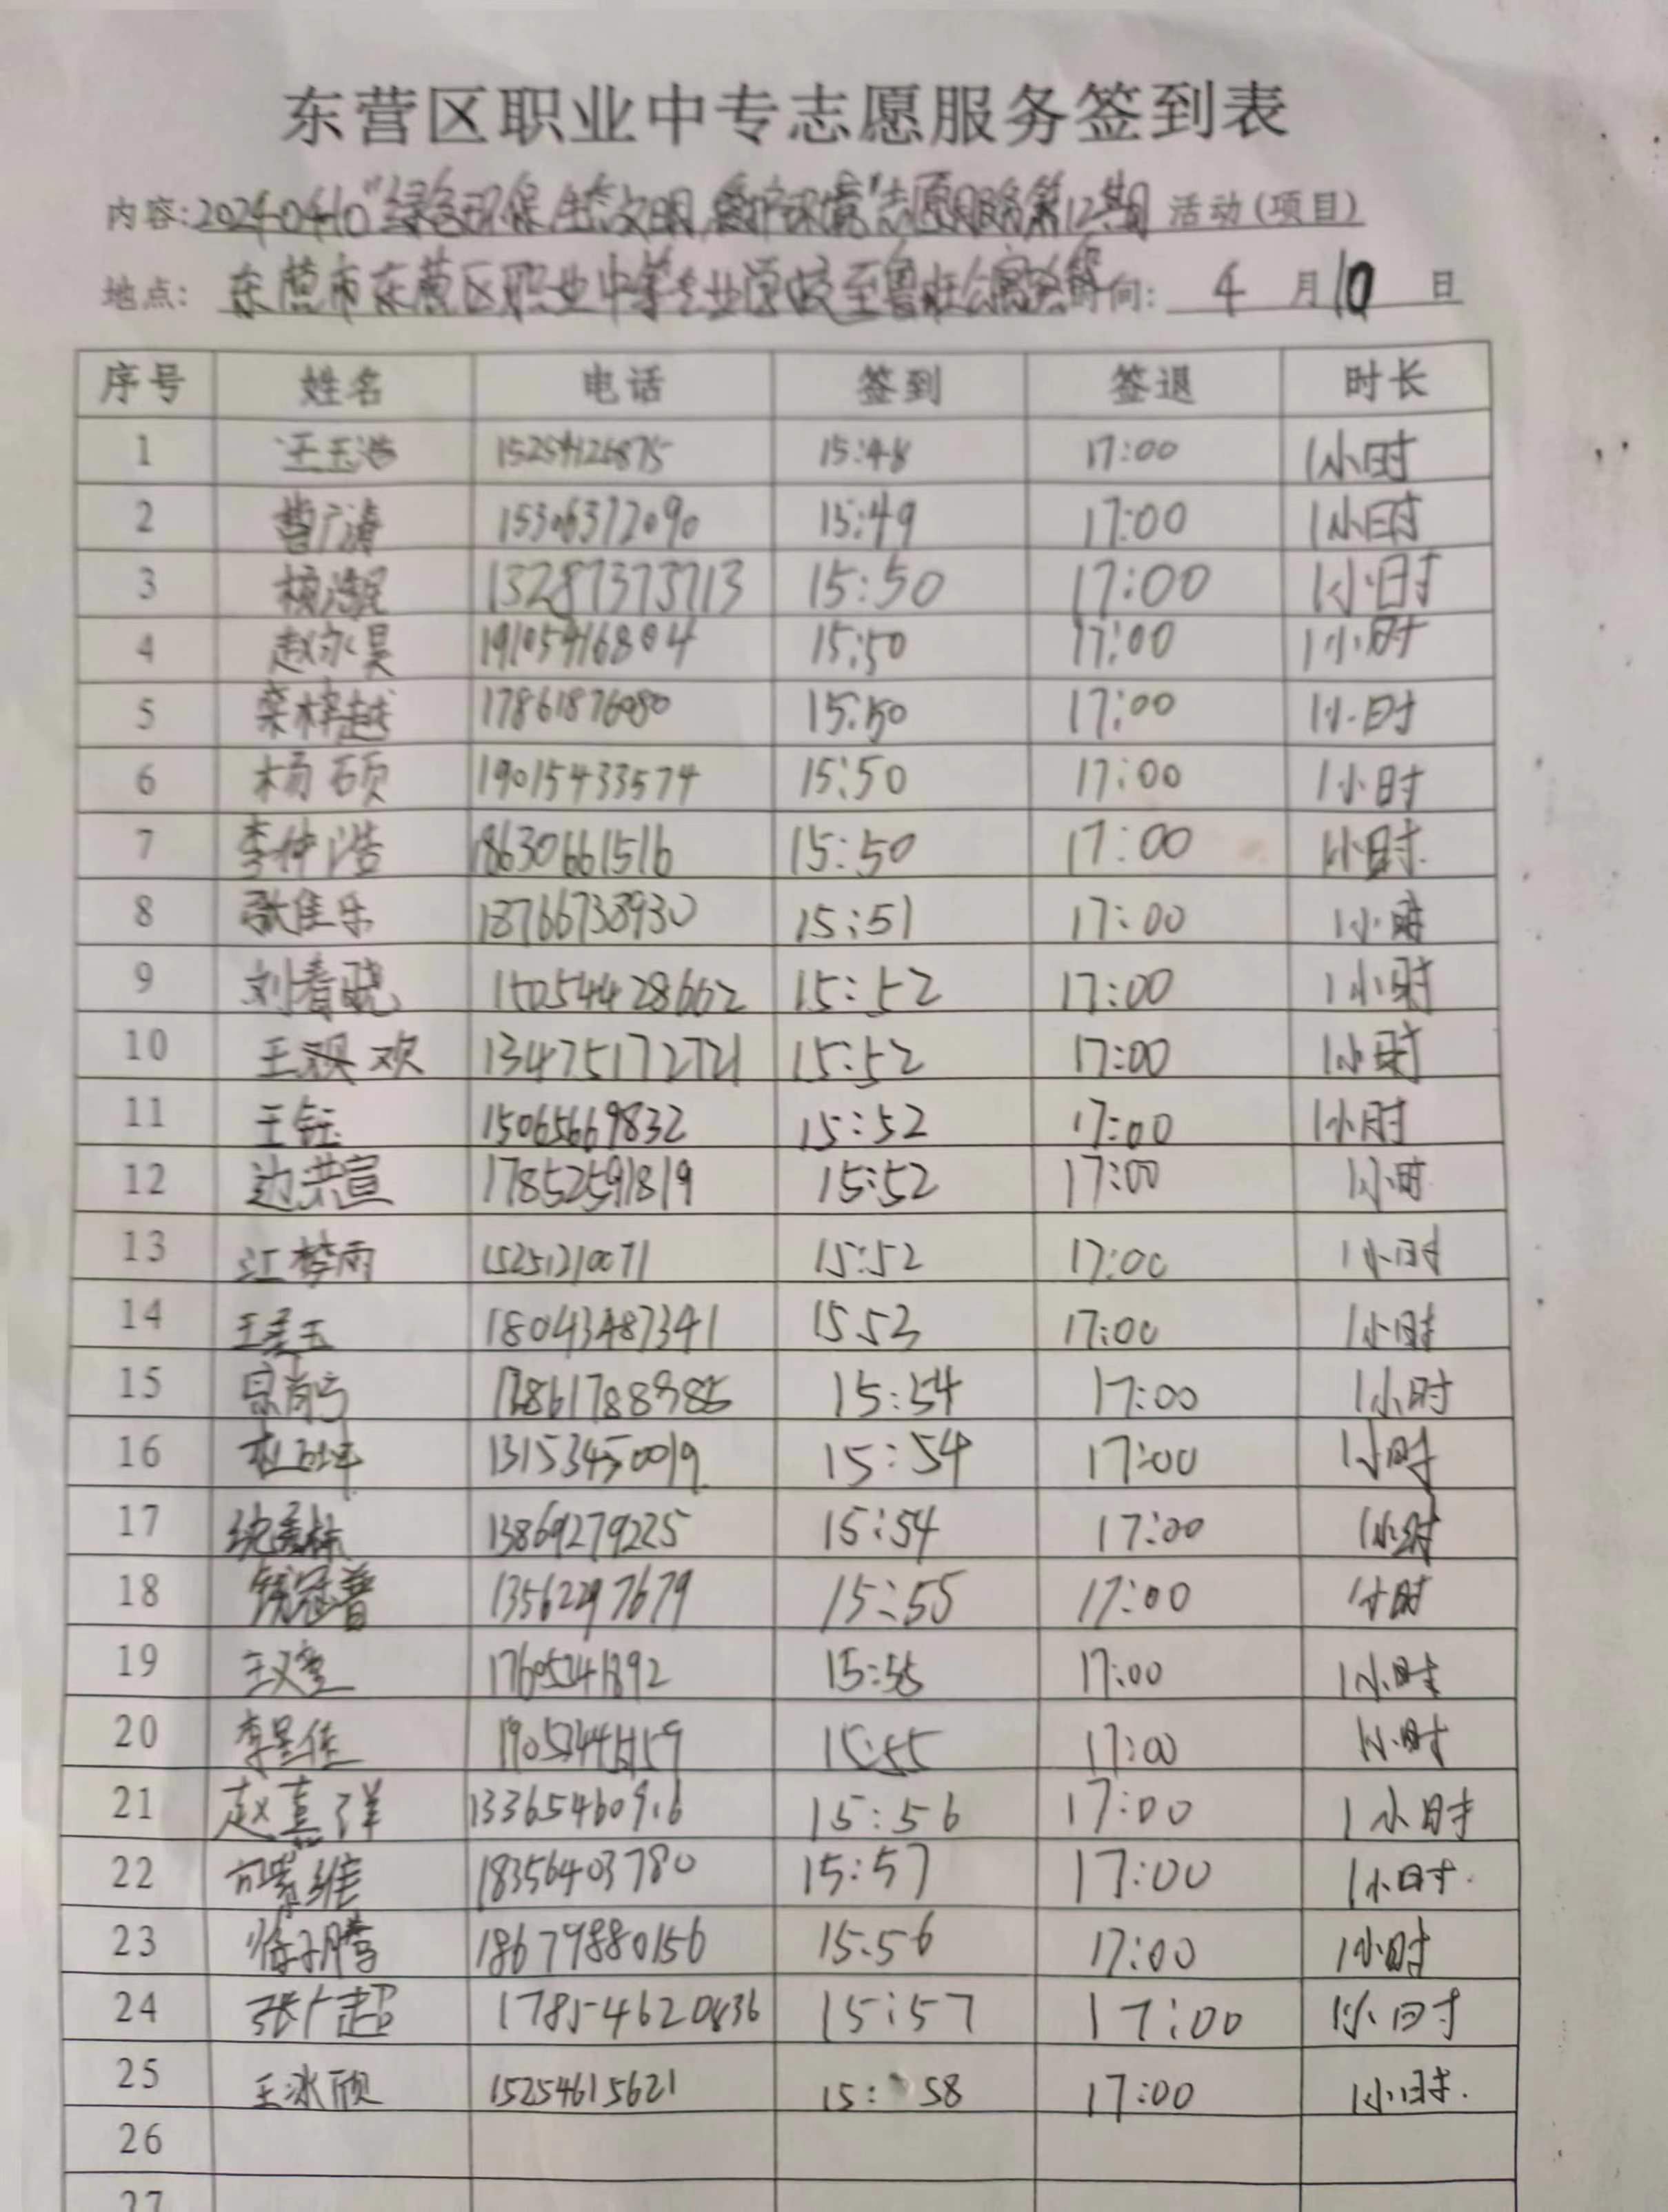 东营区职业中专志愿服务签到表
内容:20240410"绿色环保,生态文明,爱护环境"志愿服务第12期 活动(项目)
地点: 东营市东营区职业中等专业学校至鲁班公寓 时间: 4 月 10 日
序号 姓名 电话 签到 签退 时长
1 王玉浩 15254126875 15:48 17:00 1小时
2 曹广涛 15306372090 15:49 17:00 1小时
3 13287373713 15:50 17:00 1小时
4 赵永昊 19105916804 15:50 17:00 1小时
5 栾梓越 17861876080 15:50 17:00 1小时
6 杨硕 19015433574 15:50 17:00 1小时
7 李仲浩 18630661516 15:50 17:00 1小时
8 张佳乐 18766738930 15:51 17:00 1小时
9 刘春晓 15:52 17:00 1小时
10 王欢 13475172721 15:52 17:00 1小时
11 王钰 15065669832 15:52 17:00 1小时
12 边洪宣 17852591819 15:52 17:00 1小时
13 江梦雨 15251210071 15:52 17:00 1小时
14 王美玉 18043487341 15 53 17:00 1小时
15 15:54 17:00 1小时
16 13153450019 15:54 17:00 1小时
17 13869279225 15:54 17:00 1小时
18 13562297679 15:55 17:00 1小时
19 17:00 1小时
20 李星佳 15:55 17:00 1小时
21 赵嘉洋 13365460916 15:56 17:00 1小时
22 18356403780 15:57 17:00 1小时.
23 徐子腾 18679880156 15:56 17:00 1小时
24 张广超 15:57 17:00 1小时
25 王冰欣 15254615621 15:58 17:00 1小时.
26
27